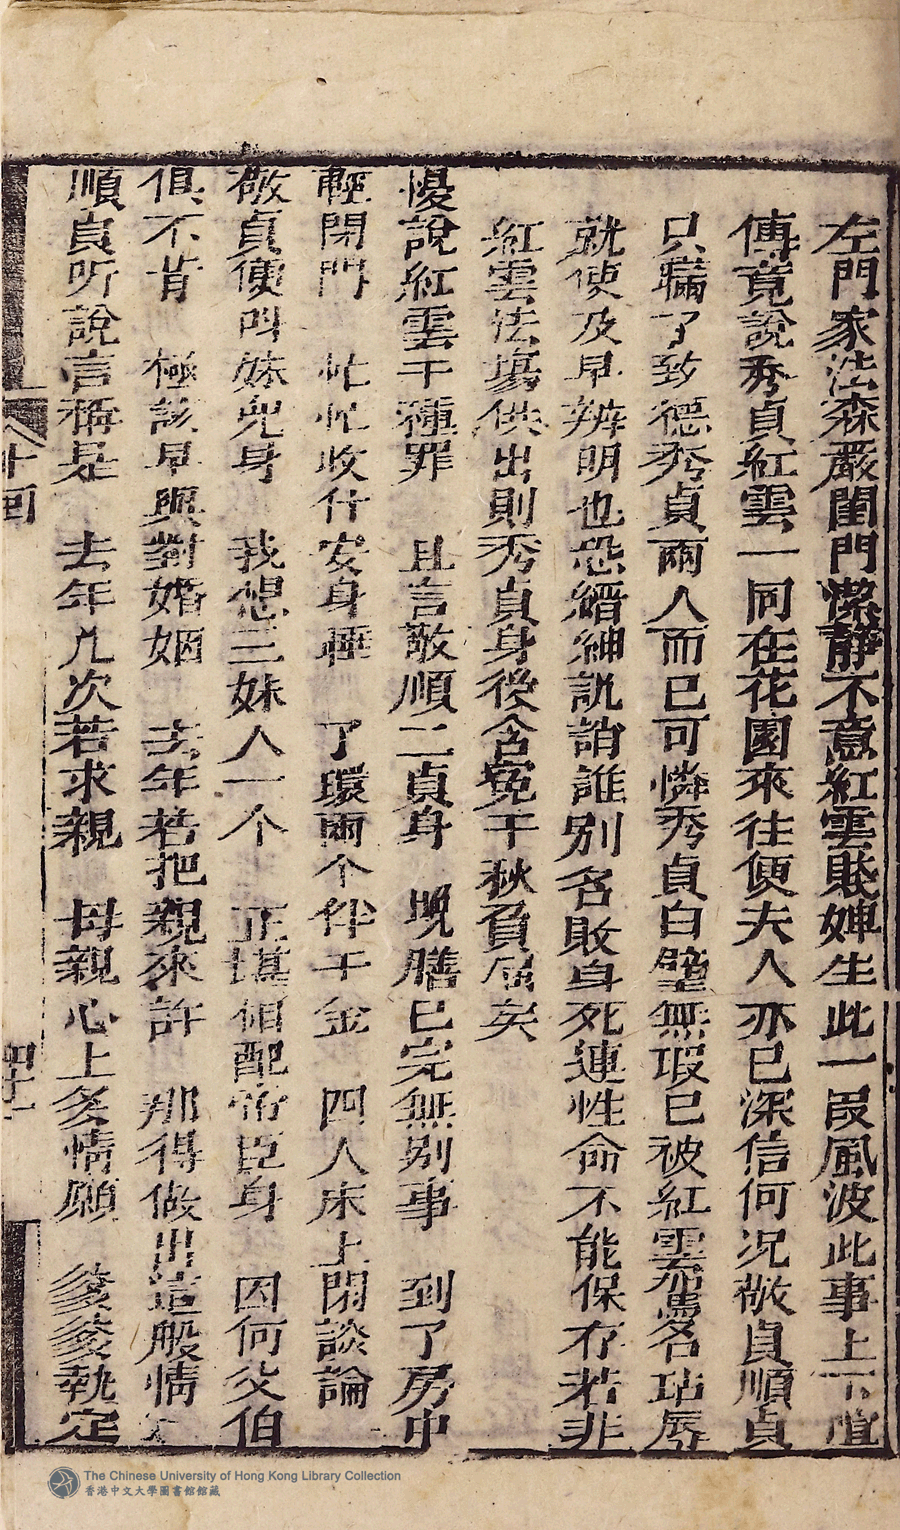 左門家法森嚴閨門潔靜不意紅雲賤婢生此一段風波此事上下喧
傳竟說秀貞紅雲一同在花園來往便夫人亦已深信何况敬貞順貞
只瞞了致德秀貞兩人而已可憐秀貞白璧無瑕已被紅雲惡名玷辱
就使及早辨明也恐縉紳訕誚誰別名敗身死連性命不能保存若非
紅雲法塲供出則秀貞身後含寃千秋負屈矣
慢說紅雲千種罪　且言敬順二貞身　晚膳已完無別事　到了房中
輕閉門　忙忙收什安身睡　了環兩个伴千金　四人床上閉談論
敬貞便叫妹兒身　我想三妹人一个　正堪相配帝臣身　因何父伯
俱不肯　極該早與對婚姻　去年若把親來許　那得做出這般情
順貞听說言稱是　去年几次若求親　母親心上多情願　爹爹執定
十回
四十一
The Chinese University of Hong Kong Library Collection
香港中文大學圖書館館藏